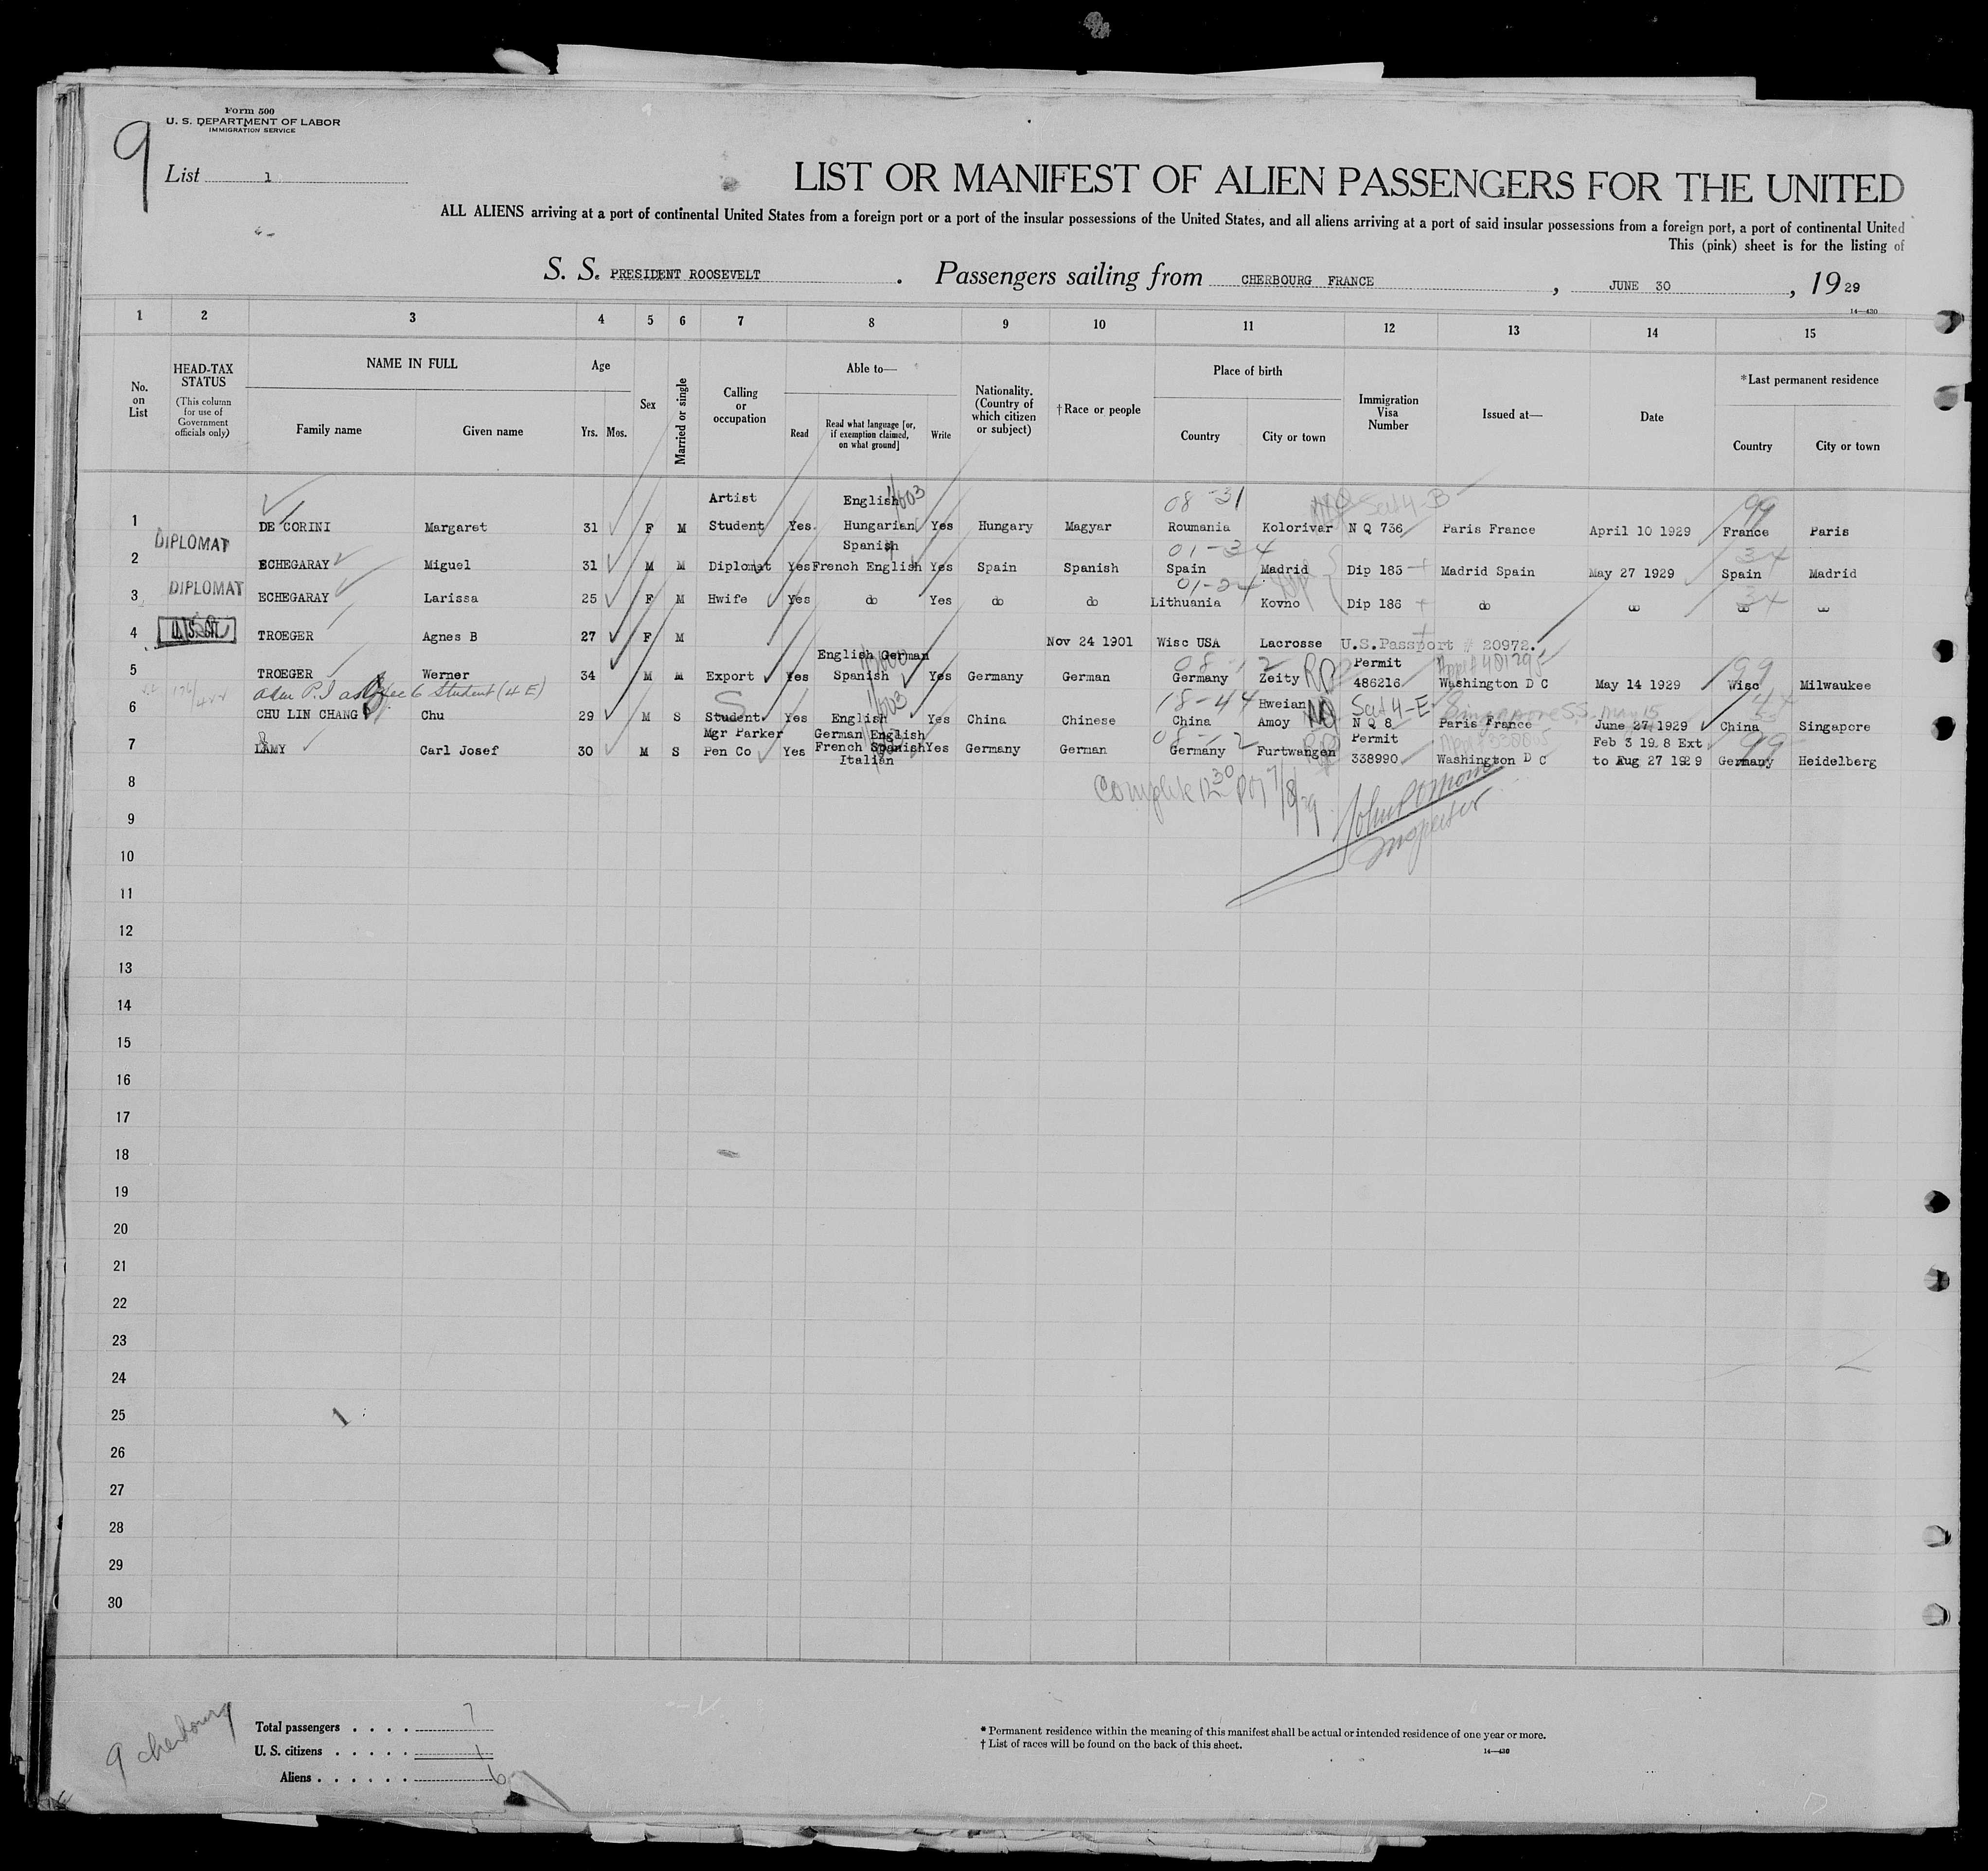 Form 500
U. S. DEPARTMENT OF LABOR
IMMIGRATION SERVICE
9
List 1
LIST OR MANIFEST OF ALIEN PASSENGERS FOR THE UNITED
ALL ALIENS arriving at a port of continental United States from a foreign port or a port of the insular possessions of the United States, and all aliens arriving at a port of said insular possessions from a foreign port, a port of continental United
This (pink) sheet is for the listing of
S. S. PRESIDENT ROOSEVELT. Passengers sailing from CHERBOURG FRANCE, JUNE 30, 1929
14—430
1 2 3 4 5 6 7 8 9 10 11 12 13 14 15
No. on List
HEAD-TAX STATUS
(This column for use of Government officials only)
NAME IN FULL
Family name Given name
Age
Yrs. Mos.
Sex
Married or single
Calling or occupation
Able to—
Read
Read what language [or, if exemption claimed, on what ground]
Write
Nationality. (Country of which citizen or subject)
†Race or people
Place of birth
Country City or town
Immigration Visa Number
Issued at—
Date
*Last permanent residence
Country City or town
Artist English 1/603 08-31 Sect 4-B 99
1 DE CORINI Margaret 31 F M Student Yes. Hungarian Yes Hungary Magyar Roumania Kolorivar N Q 736 Paris France April 10 1929 France Paris
DIPLOMAT Spanish 01-34 34
2 ECHEGARAY Miguel 31 M M Diplomat Yes French English Yes Spain Spanish Spain Madrid Dip 185 Madrid Spain May 27 1929 Spain Madrid
DIPLOMAT 01-24 34
3 ECHEGARAY Larissa 25 F M Hwife Yes do Yes do do Lithuania Kovno Dip 186 do do do do
4 U.S.A. TROEGER Agnes B 27 F M Nov 24 1901 Wisc USA Lacrosse U.S.Passport # 20972.
English German 08-12 Permit 99
5 TROEGER Werner 34 M M Export Yes Spanish Yes Germany German Germany Zeity 486216 Washington D C May 14 1929 Wisc Milwaukee
adm P.I as Sec 6 Student (4 E) S 1/603 18-44 Hweian Sect 4-E Singapore S.S. 44
6 CHU LIN CHANG Chu 29 M S Student Yes English Yes China Chinese China Amoy NQ N Q 8 Paris France June 27 1929 China Singapore
Mgr Parker German English 08-12 Permit Feb 3 19 8 Ext 99
7 LAMY Carl Josef 30 M S Pen Co Yes French Spanish Yes Germany German Germany Furtwangen 338990 Washington D C to Aug 27 1929 Germany Heidelberg
Italian
8
Complete 12 30 PM 7/8/29
Inspector
9
10
11
12
13
14
15
16
17
18
19
20
21
22
23
24
25
26
27
28
29
30
9 Cherbourg
Total passengers . . . . 7
U. S. citizens . . . . . 1
Aliens . . . . . . 6
* Permanent residence within the meaning of this manifest shall be actual or intended residence of one year or more.
† List of races will be found on the back of this sheet.
14—430